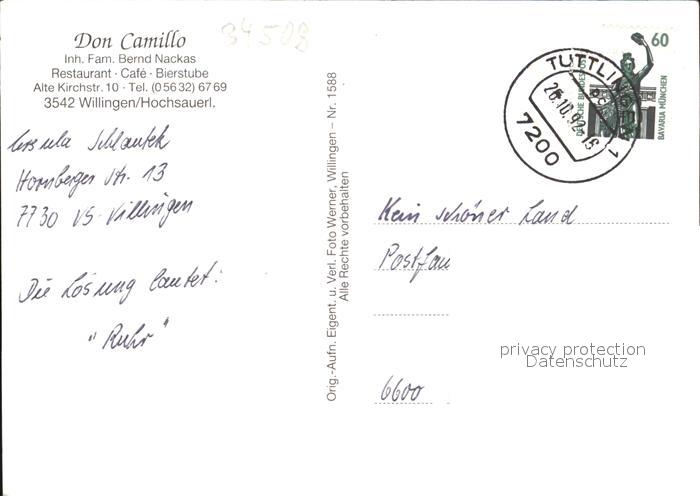 Don Camillo
Inh. Fam. Bernd Nackas
Restaurant · Café · Bierstube
Alte Kirchstr. 10 · Tel. (05632) 6769
3542 Willingen/Hochsauerl.
34508
Ursula Schlautek
Hornberger Str. 13
7730 VS-Villingen
Die Lösung lautet:
"Ruhr"
Orig.-Aufn. Eigent. u. Verl. Foto Werner, Willingen – Nr. 1588
Alle Rechte vorbehalten
60
DEUTSCHE BUNDESPOST
BAVARIA MÜNCHEN
TUTTLINGEN 1
26.10.92-18
7200
Kein schöner Land
Postfau
6600
privacy protection
Datenschutz